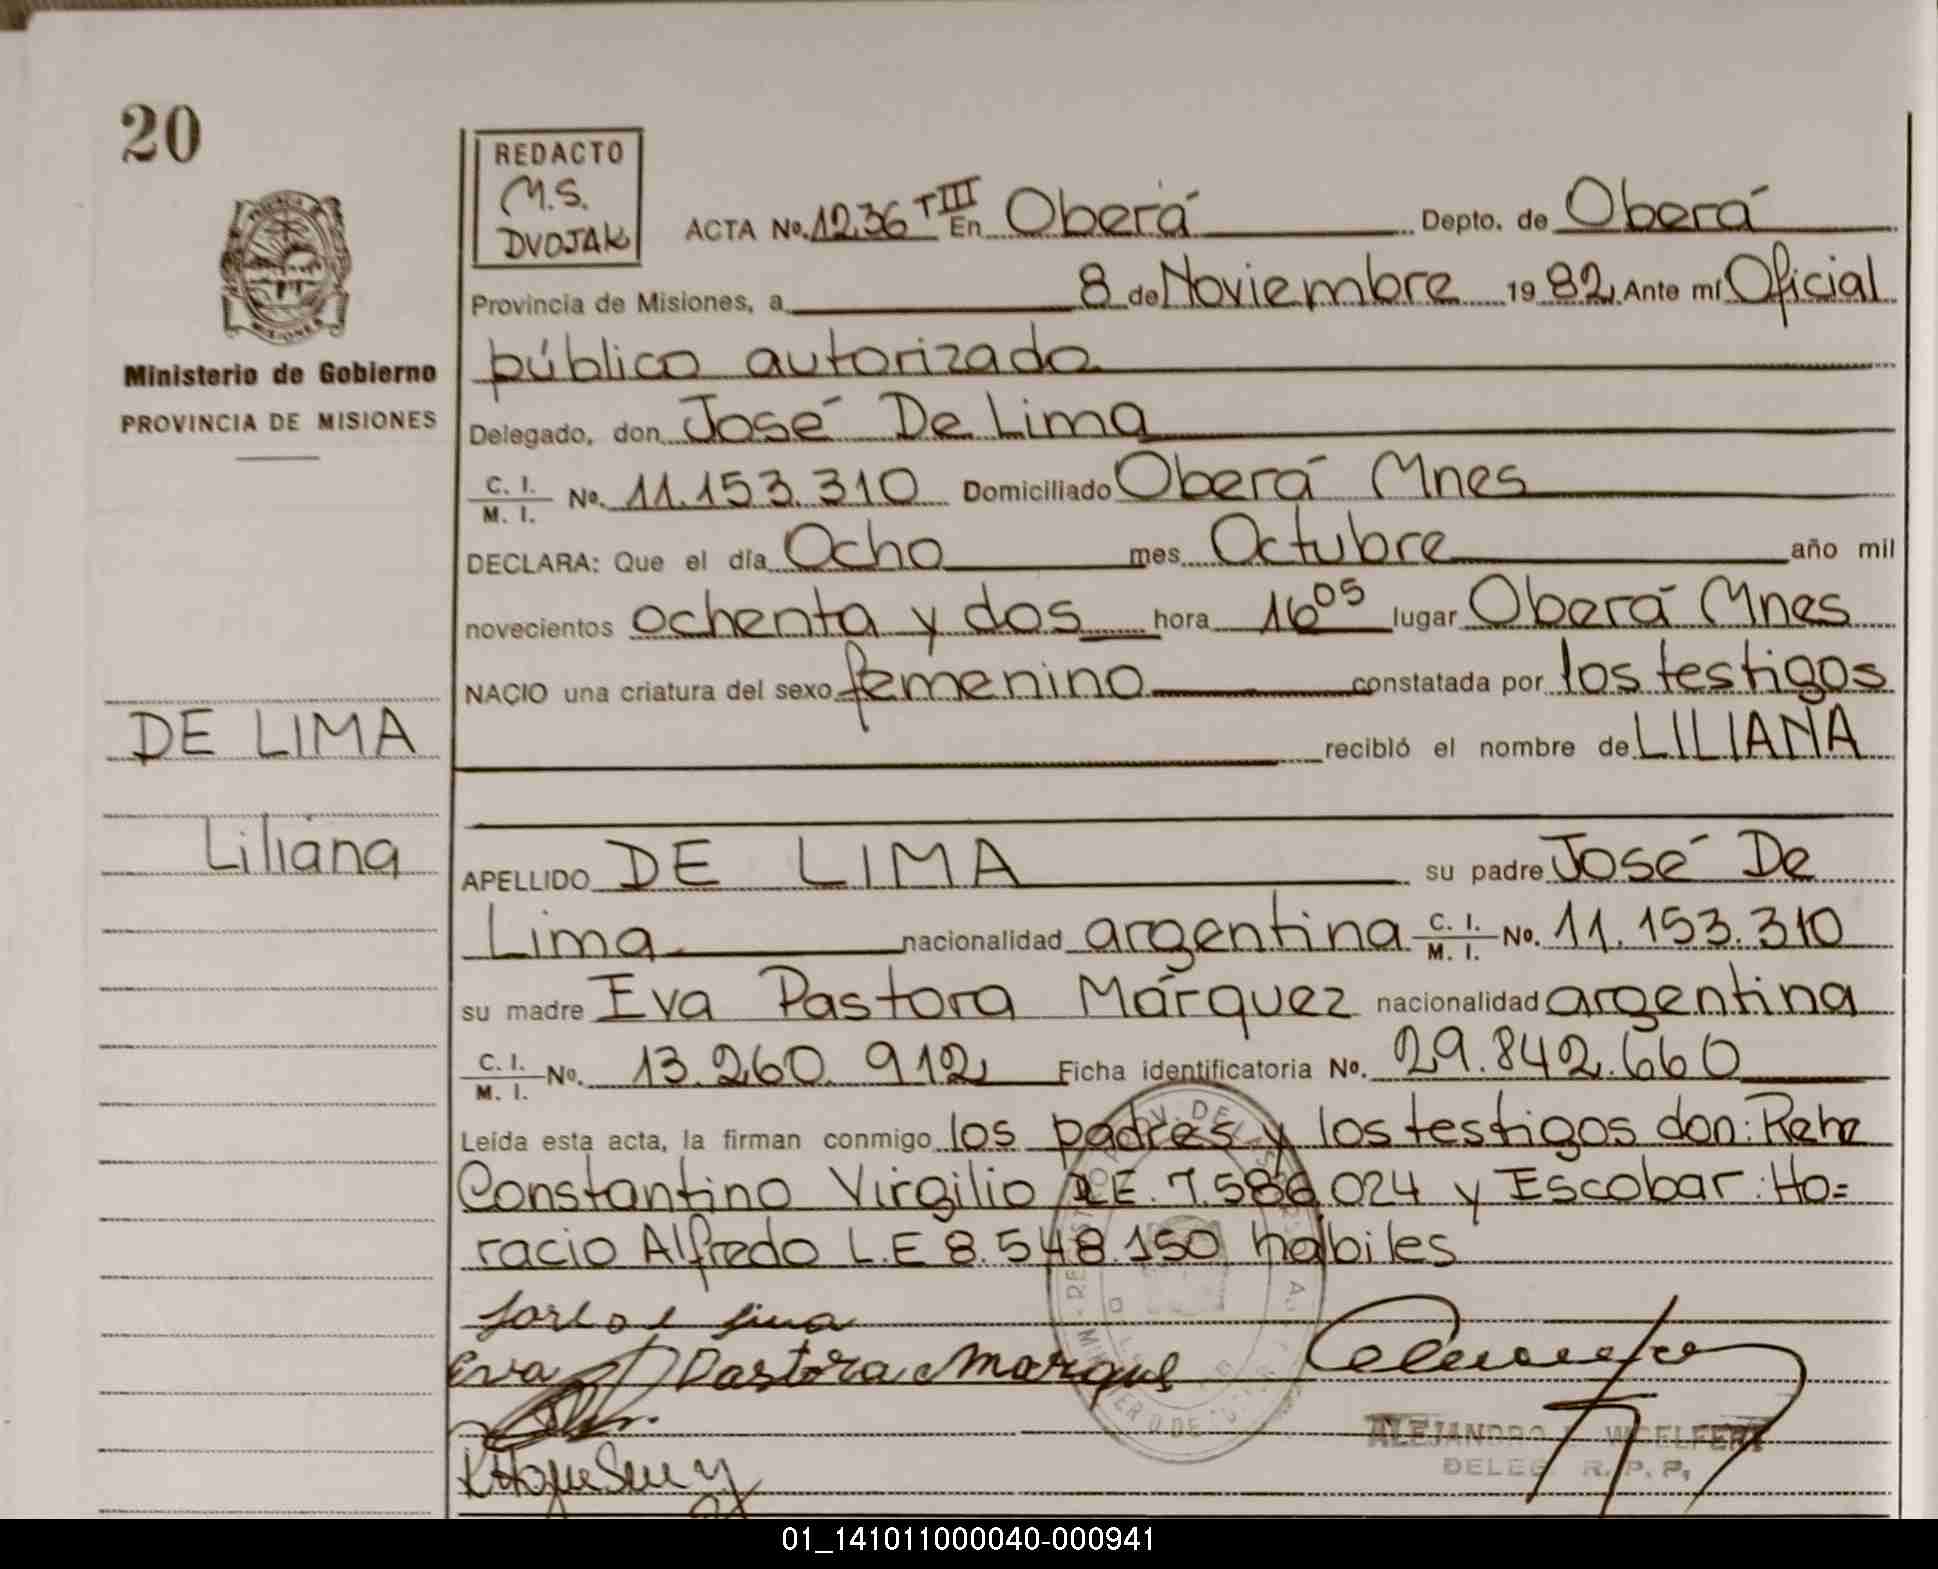 20
REDACTO
M.S.
DVOJAK
ACTA No. 1236 TIII En Oberá Depto. de Oberá
Provincia de Misiones, a 8 de Noviembre 1982 Ante mí Oficial
Ministerio de Gobierno
PROVINCIA DE MISIONES
público autorizado
Delegado, don José De Lima
C. I. / M. I. No. 11.153.310 Domiciliado Oberá Mnes
DECLARA: Que el día Ocho mes Octubre año mil
novecientos ochenta y dos hora 16 05 lugar Oberá Mnes
NACIO una criatura del sexo femenino constatada por los testigos
recibió el nombre de LILIANA
DE LIMA
Liliana
APELLIDO DE LIMA su padre José De
Lima nacionalidad argentina C. I. / M. I. No. 11.153.310
su madre Eva Pastora Márquez nacionalidad argentina
C. I. / M. I. No. 13.260.912 Ficha identificatoria No. 29.842.660
Leída esta acta, la firman conmigo los padres y los testigos don:
Constantino Virgilio L.E. 7.586.024 y Escobar: Ho=
racio Alfredo L.E 8.548.150 habiles
Eva Pastora Marques
ALEJANDRO WOELFERT
DELEG. R. P. P.
01_141011000040-000941